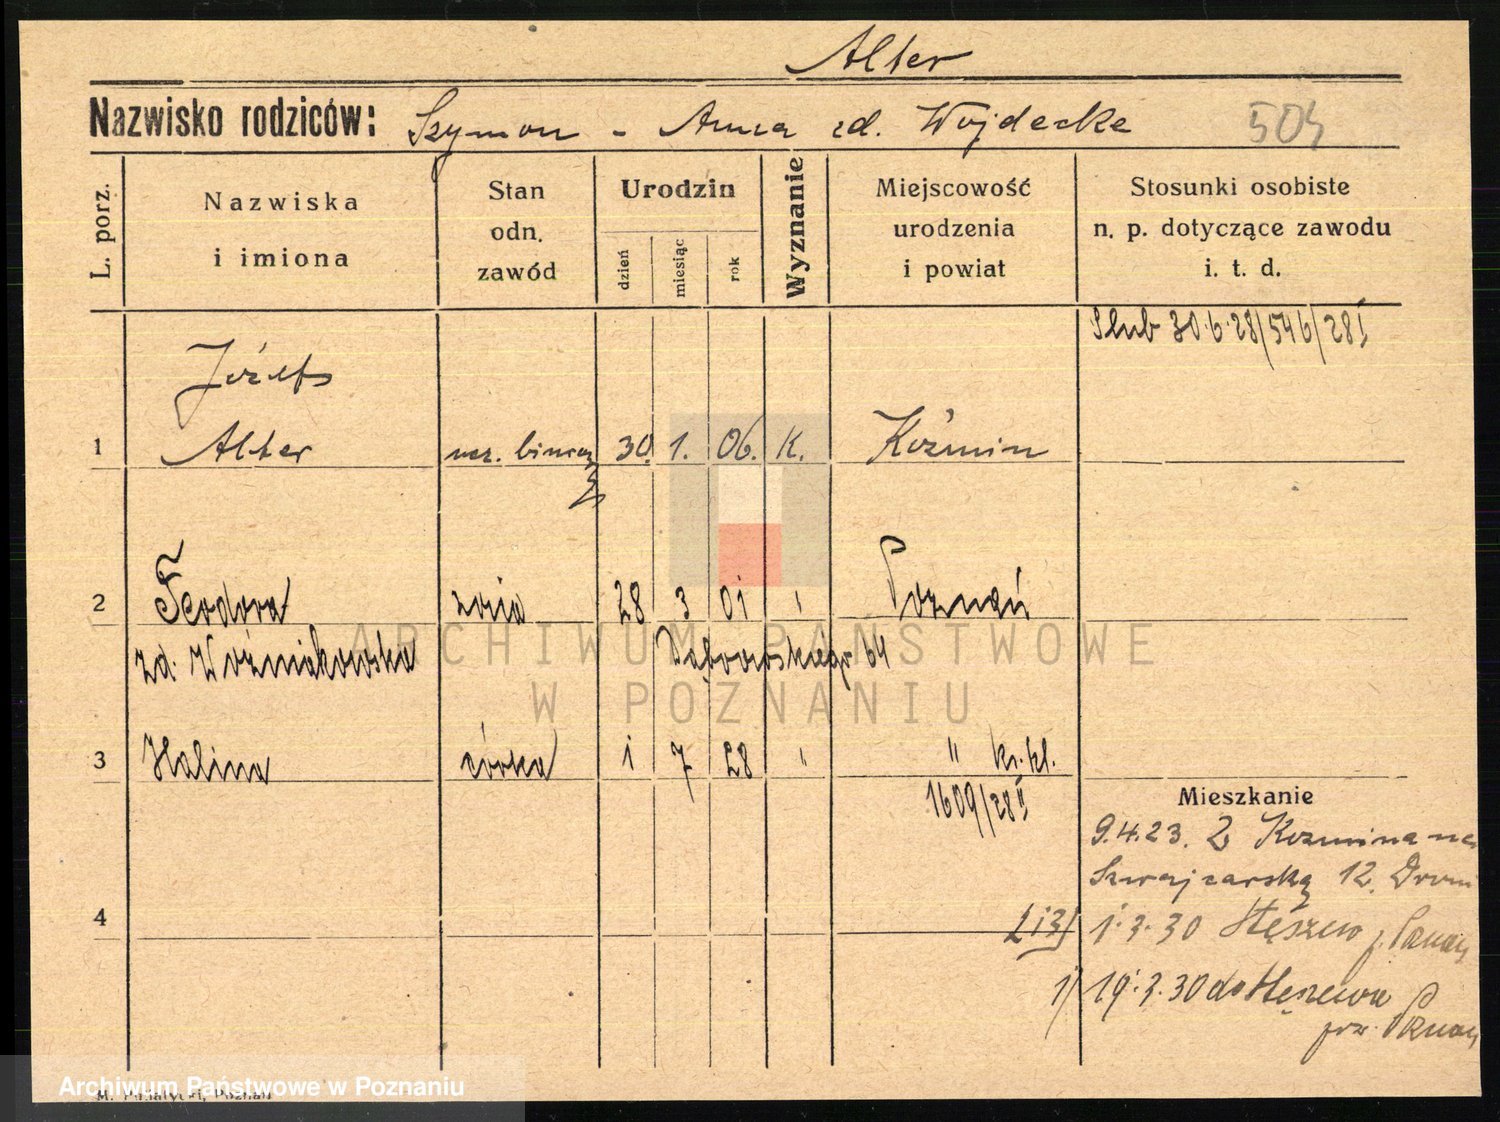 Alter
Nazwisko rodziców: Szymon - Anna zd. Wojdecka 504
L. porz.
Nazwiska
i imiona
Stan
odn.
zawód
Urodzin
dzień
miesiąc
rok
Wyznanie
Miejscowość
urodzenia
i powiat
Stosunki osobiste
n. p. dotyczące zawodu
i. t. d.
Ślub 30.6.28/546/28 I
Józef
1 Alter ucz. 30. 1. 06. K. Koźmin
2 Teodora żona 28 3 01 " Poznań
zd. Woźniakowska Dąbrowskiego 64
ARCHIWUM PAŃSTWOWE
W POZNANIU
3 Halina córka 1 7 28 " " kr. kl.
1609/28 II
Mieszkanie
9.4.23. Z Kozmina na
Szwajcarską 12.
4
1.3.30 Stęszew p. Poznań
1) 19.3.30 do Stęszewa
pow. Poznań
Archiwum Państwowe w Poznaniu
Poznań